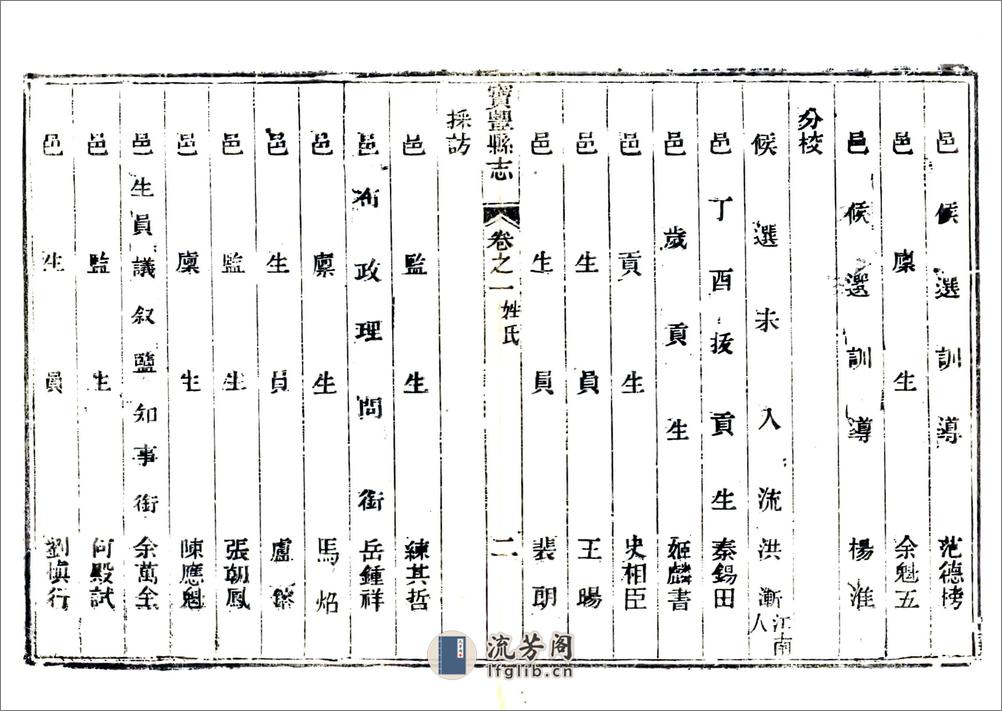 邑候選訓導范德㭴
邑廩生余魁五
邑候選訓導楊淮
分校
候選未入流洪漸江南人
邑丁酉拔貢生秦錫田
邑歲貢生姬麟書
邑貢生史相臣
邑生員王暘
邑生員裴朗
採訪
寶豐縣志 卷之一 姓氏 二
邑監生練其哲
邑布政理問銜岳鍾祥
邑廩生馬焰
邑生員盧
邑監生張朝鳳
邑廩生陳應魁
邑生員議叙鹽知事銜余萬全
邑監生何殿試
邑生員劉慎行
流芳阁
lfglib.cn